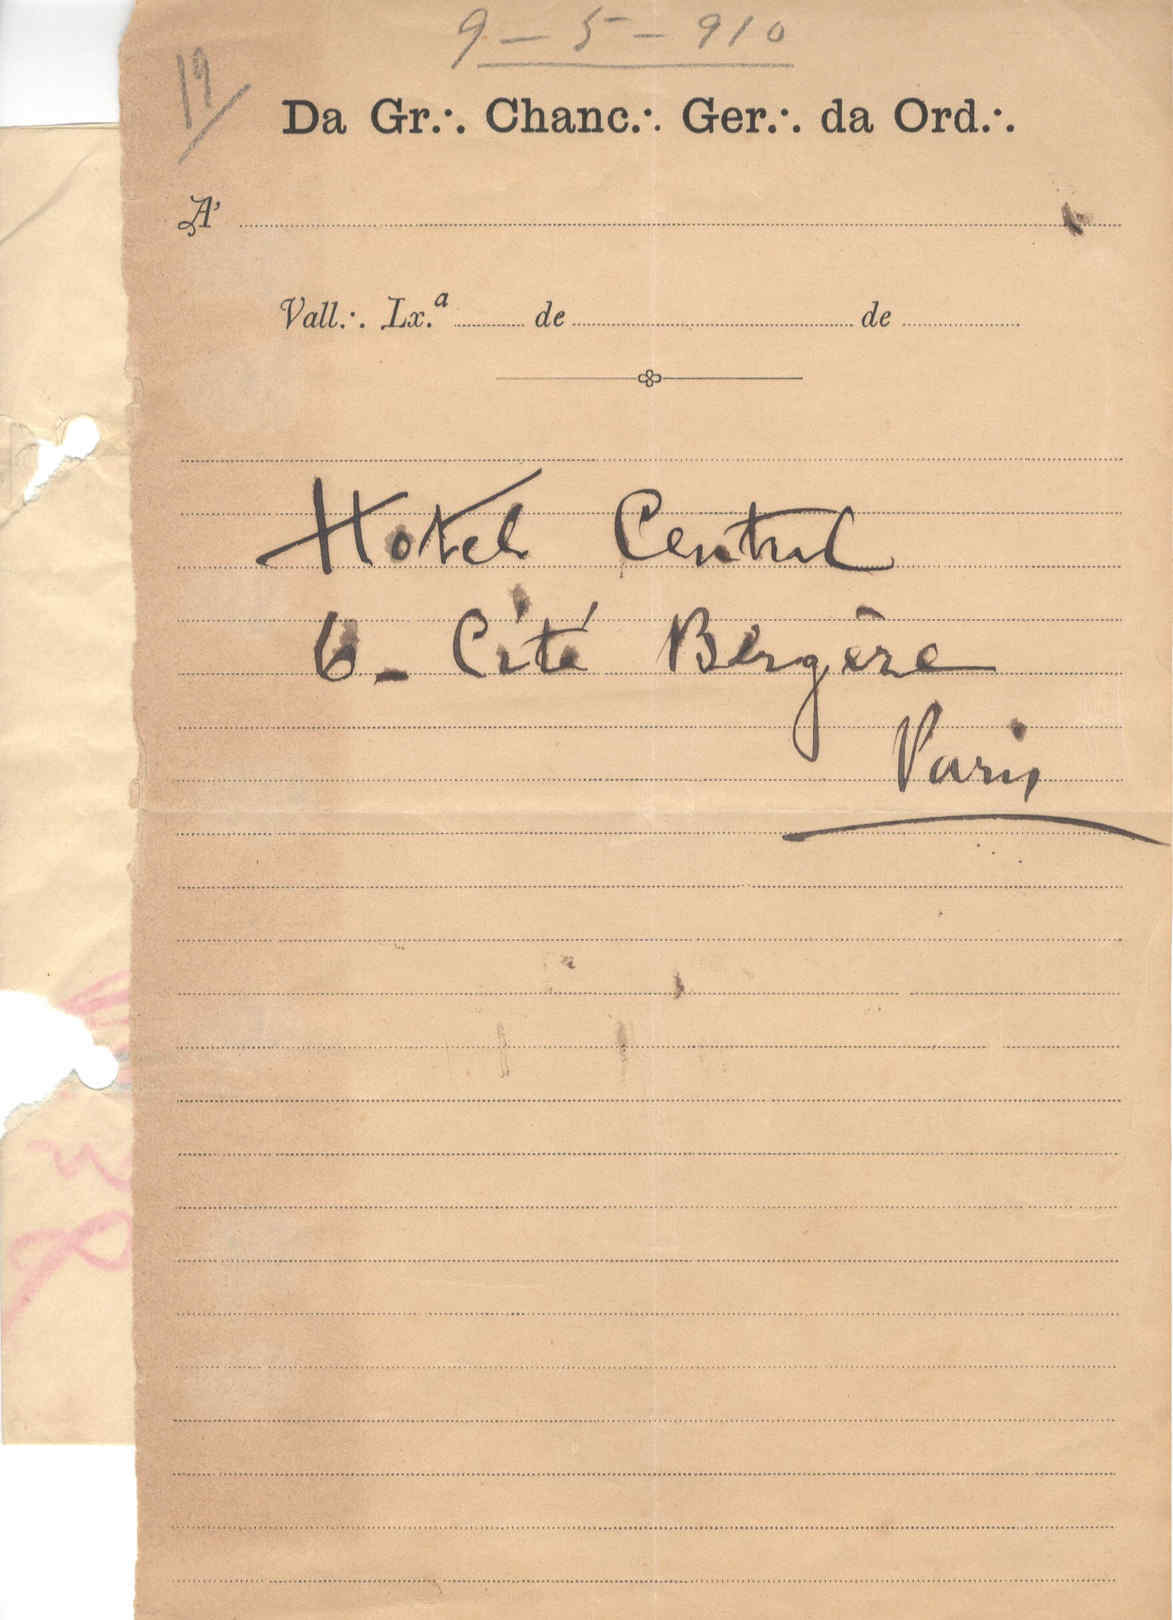 9 - 5 - 910
19
Da Gr.∴ Chanc.∴ Ger.∴ da Ord.∴
A'
Vall.∴ Lx.ª de de
Hotel Central
6 - Cité Bergère
Paris